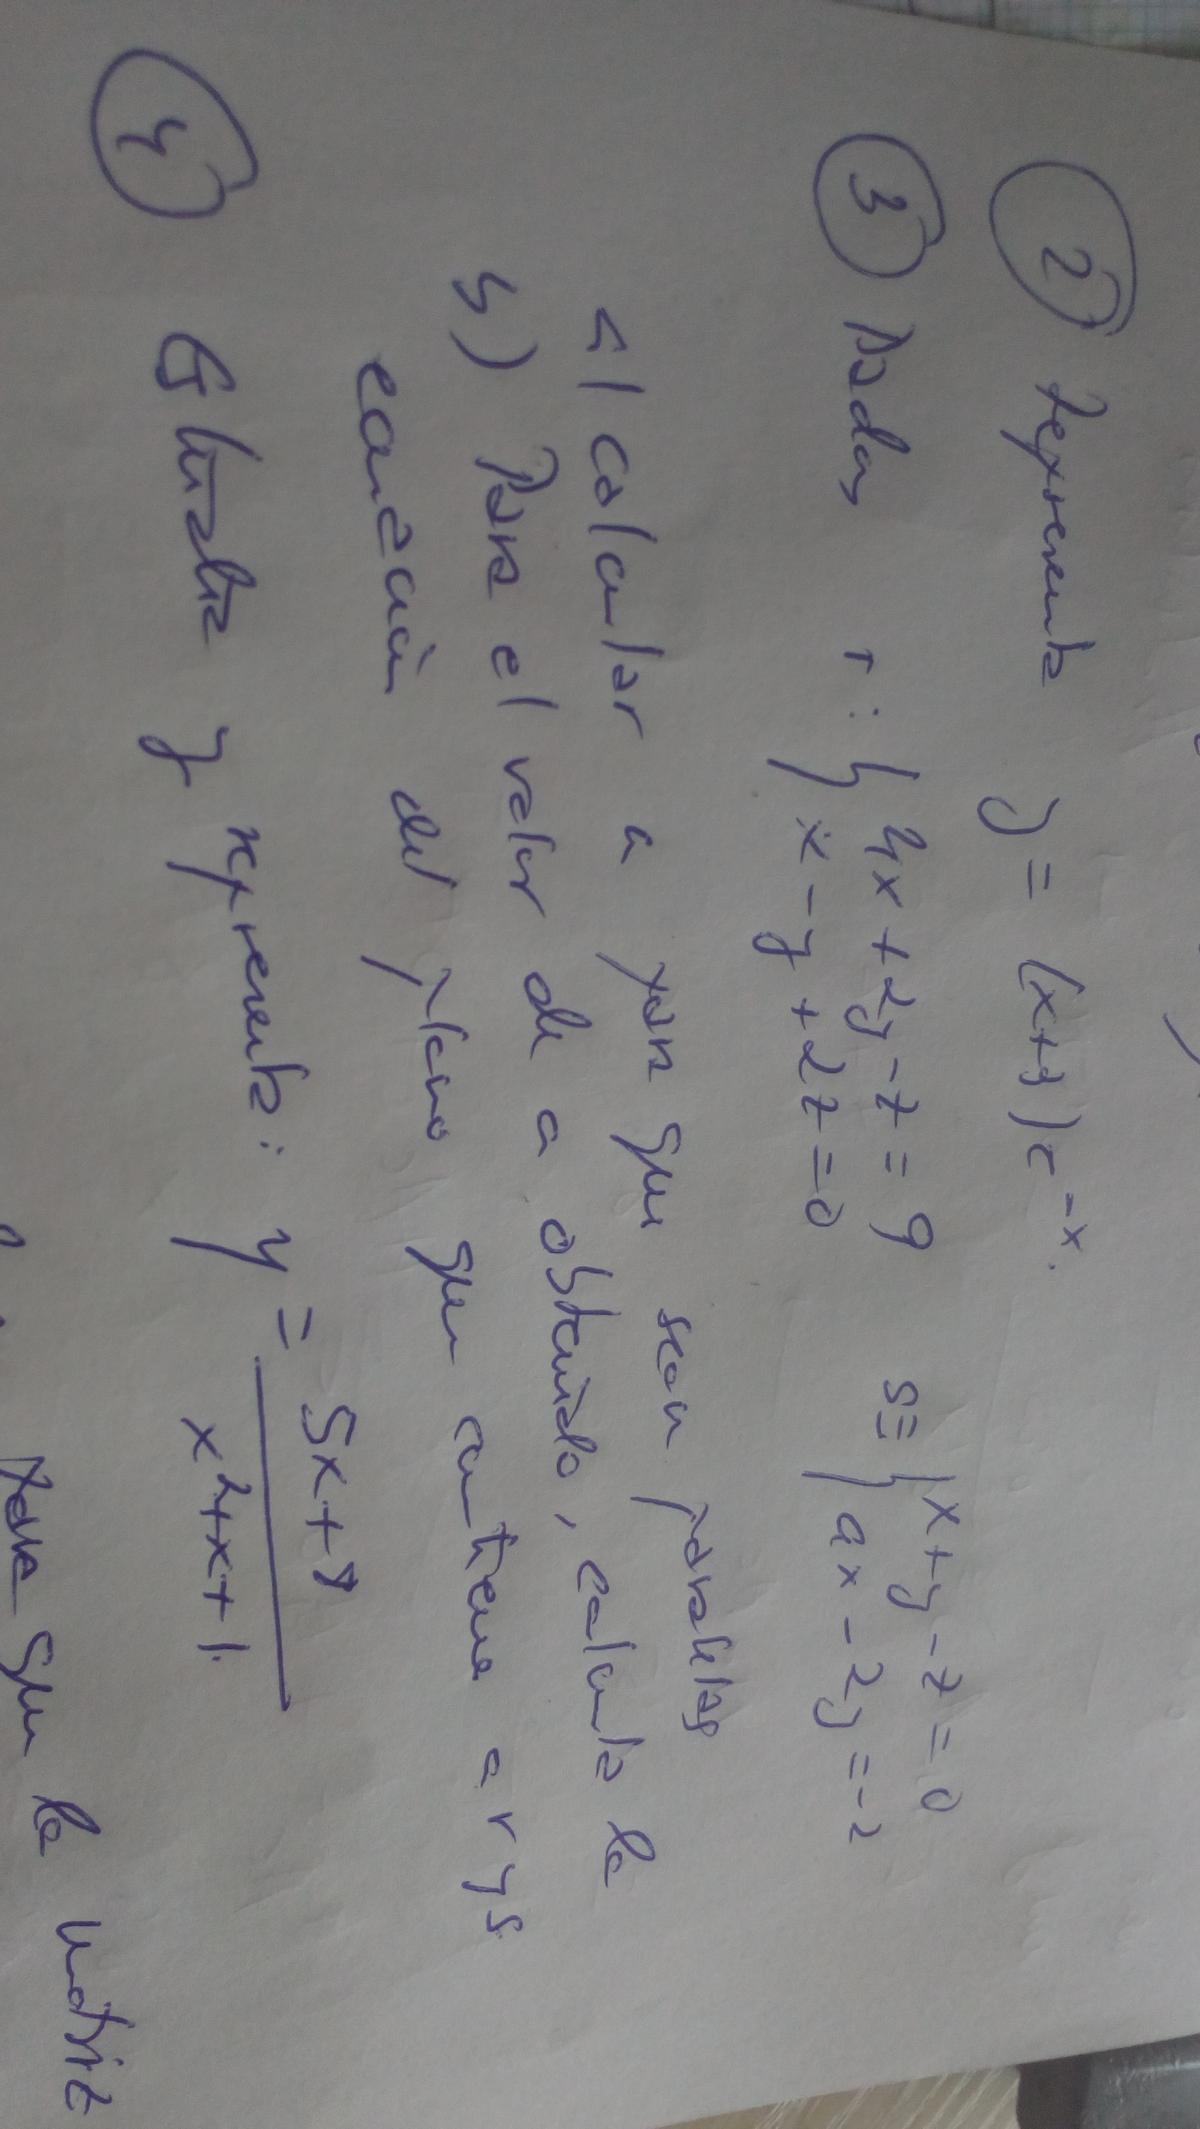 ② Represente y = (x+3)e⁻ˣ.
③ Dadas r: { 4x+2y-z=9 s≡ { x+y-z=0
x-y+2z=0 ax-2y=-2
calcular a para que sean paralelas
b) Para el valor de a obtenido, calcula la
ecuación del plano que contiene a r y s
④ Estudia y representa: y = 5x+8
x²+x+1.
para que la matriz